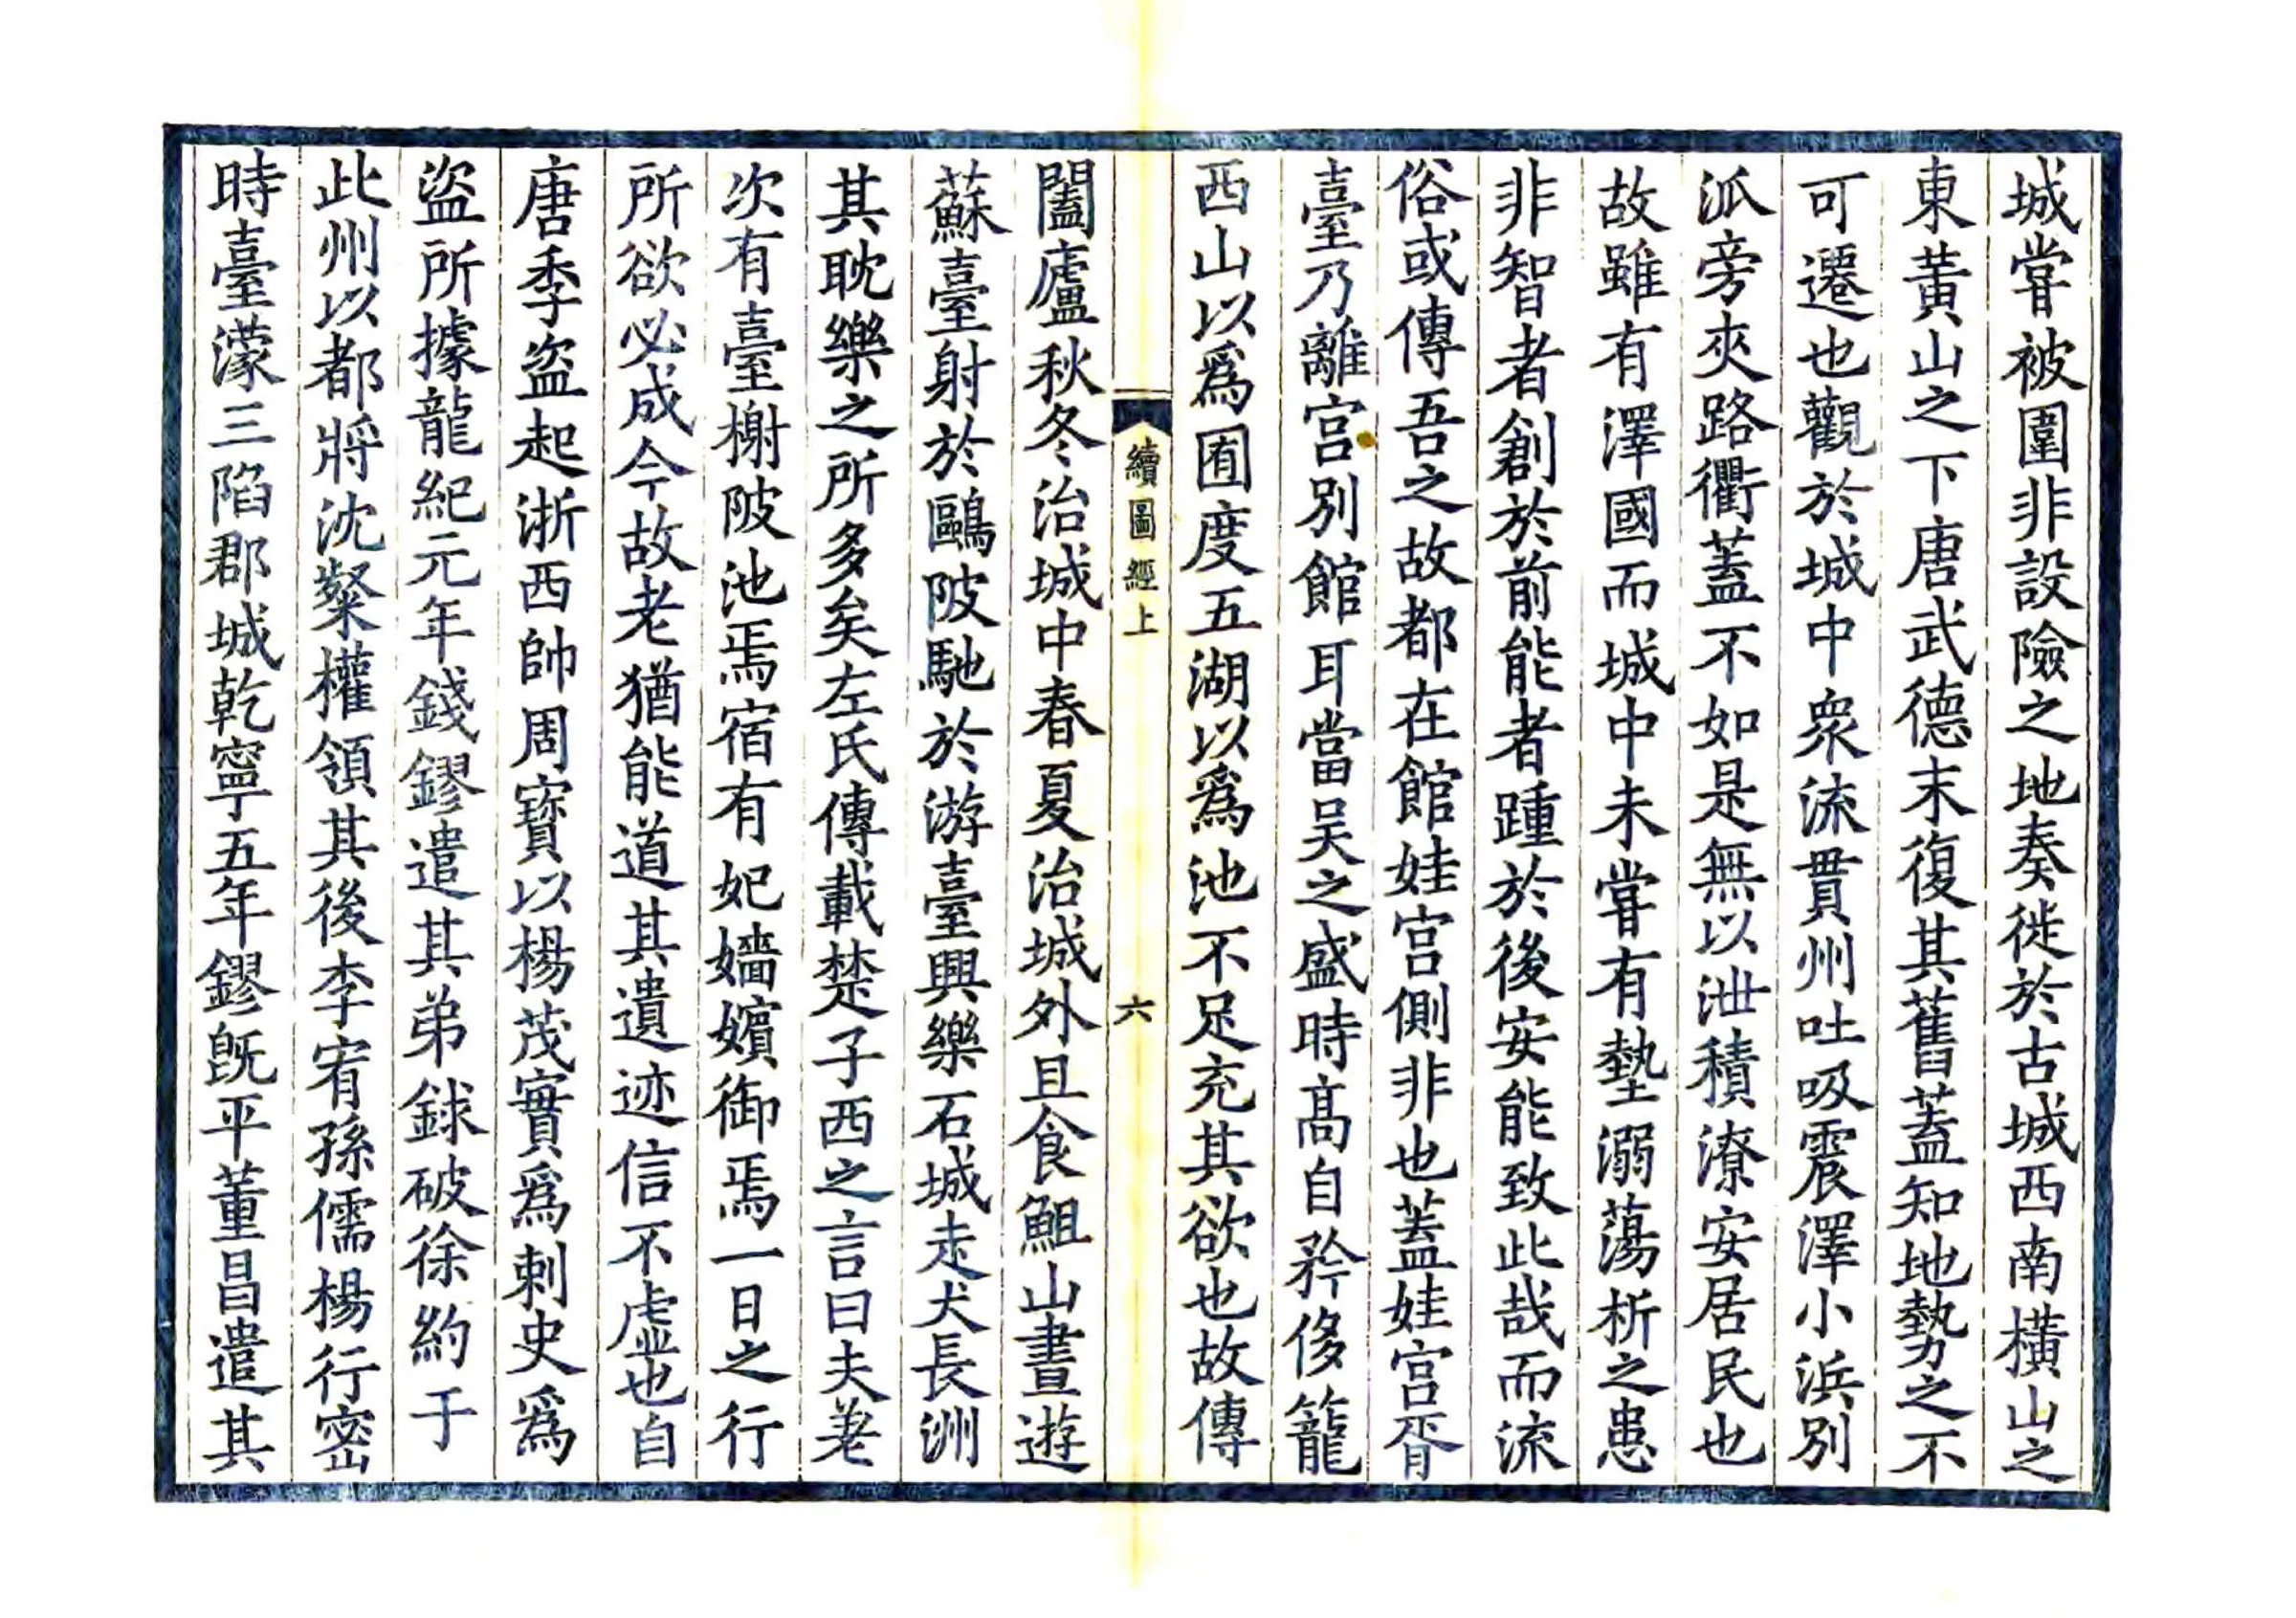 城嘗被圍非設險之地奏徙於古城西南橫山之
東黃山之下唐武德末復其舊蓋知地勢之不
可遷也觀於城中衆流貫州吐吸震澤小浜別
派旁夾路衢蓋不如是無以泄積潦安居民也
故雖有澤國而城中未嘗有墊溺蕩析之患
非智者創於前能者踵於後安能致此哉而流
俗或傳吾之故都在館娃宮側非也蓋娃宮胥
臺乃離宮別館耳當吴之盛時髙自矜侈籠
西山以爲囿度五湖以爲池不足充其欲也故傳
續圖經上
六
闔廬秋冬治城中春夏治城外且食䱉山晝遊
蘇臺射於鷗陂馳於游臺興樂石城走犬長洲
其耽樂之所多矣左氏傳載楚子西之言曰夫差
次有臺榭陂池焉宿有妃嬙嬪御焉一日之行
所欲必成今故老猶能道其遺迹信不虚也自
唐季盜起浙西帥周寶以楊茂實爲刺史爲
盜所據龍紀元年錢鏐遣其弟銶破徐約于
此州以都將沈粲權領其後李宥孫儒楊行密
時臺濛三陷郡城乾寧五年鏐旣平董昌遣其